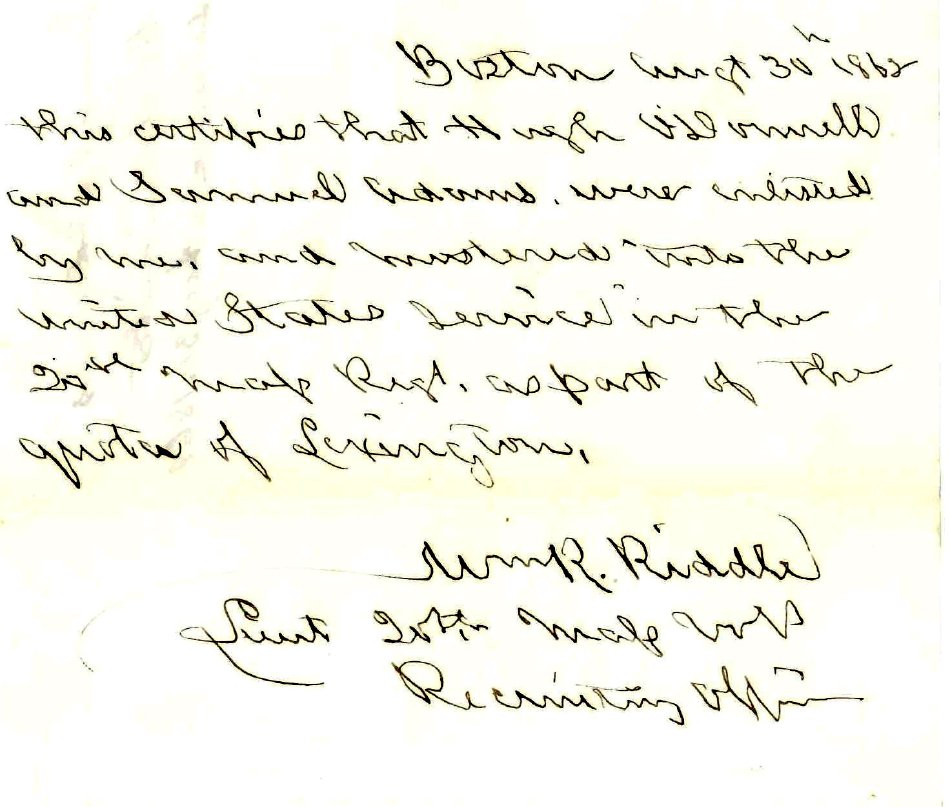 Boston Augt 30th 1862
this certifies that Hugh O'Donnell
and Samuel Adams, were enlisted
by me, and mustered into the
United States Service in the
20th Mass Regt, as part of the
quota of Lexington,
Wm R. Riddle
Lieut 20th Mass Vols
Recruiting Officer